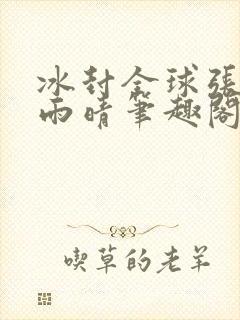 冰封全球張
雨晴筆趣閣
喫草的老羊